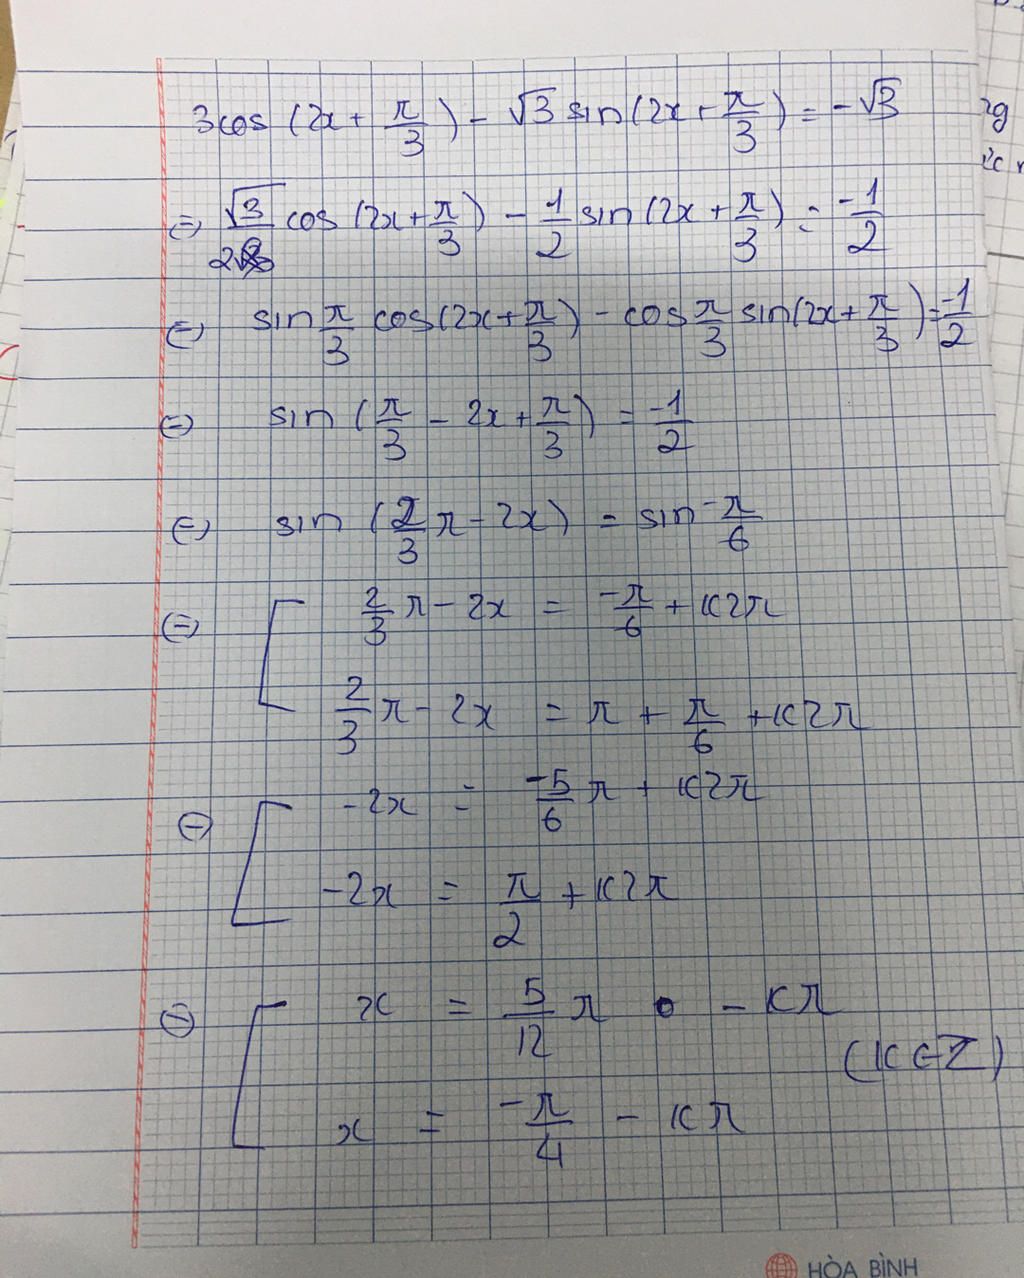 3cos (2x + π/3) - √3 sin(2x + π/3) = -√3
⇔ √3/2 cos (2x + π/3) - 1/2 sin (2x + π/3) = -1/2
⇔ sin π/3 cos(2x + π/3) - cos π/3 sin(2x + π/3) = -1/2
⇔ sin (π/3 - 2x + π/3) = -1/2
⇔ sin (2/3 π - 2x) = sin -π/6
⇔ [ 2/3 π - 2x = -π/6 + K2π
2/3 π - 2x = π + π/6 + K2π
⇔ [ -2x = -5/6 π + K2π
-2x = π/2 + K2π
⇔ [ x = 5/12 π - Kπ
(K ∈ Z)
x = -π/4 - Kπ
HÒA BÌNH